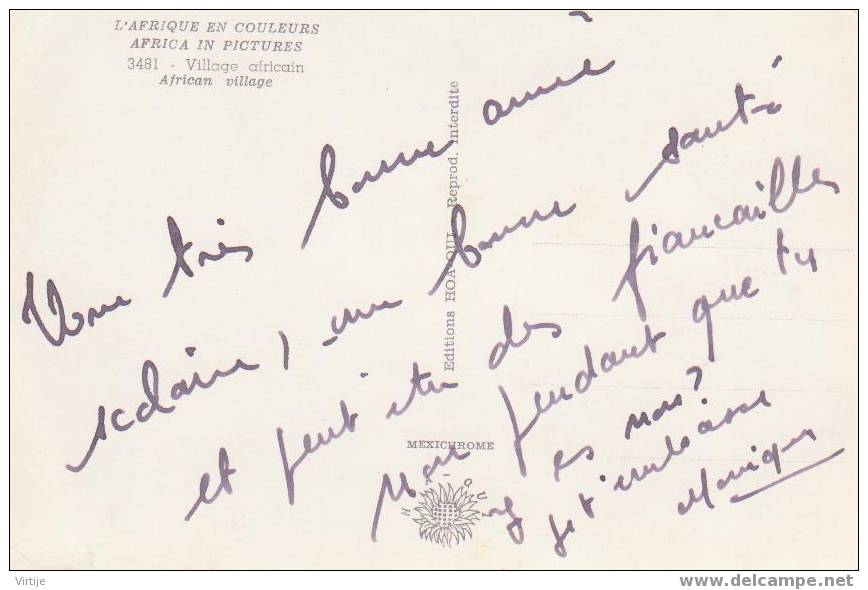 L'AFRIQUE EN COULEURS
AFRICA IN PICTURES
3481 - Village africain
African village
Editions HOA-QUI Reprod. Interdite
MEXICHROME
HOA-QUI
Une très bonne année
scolaire, une bonne santé
et peut être des fiançailles
Non pendant que tu
y es non?
je t'embrasse
Monique
Virtije
delcampe.net